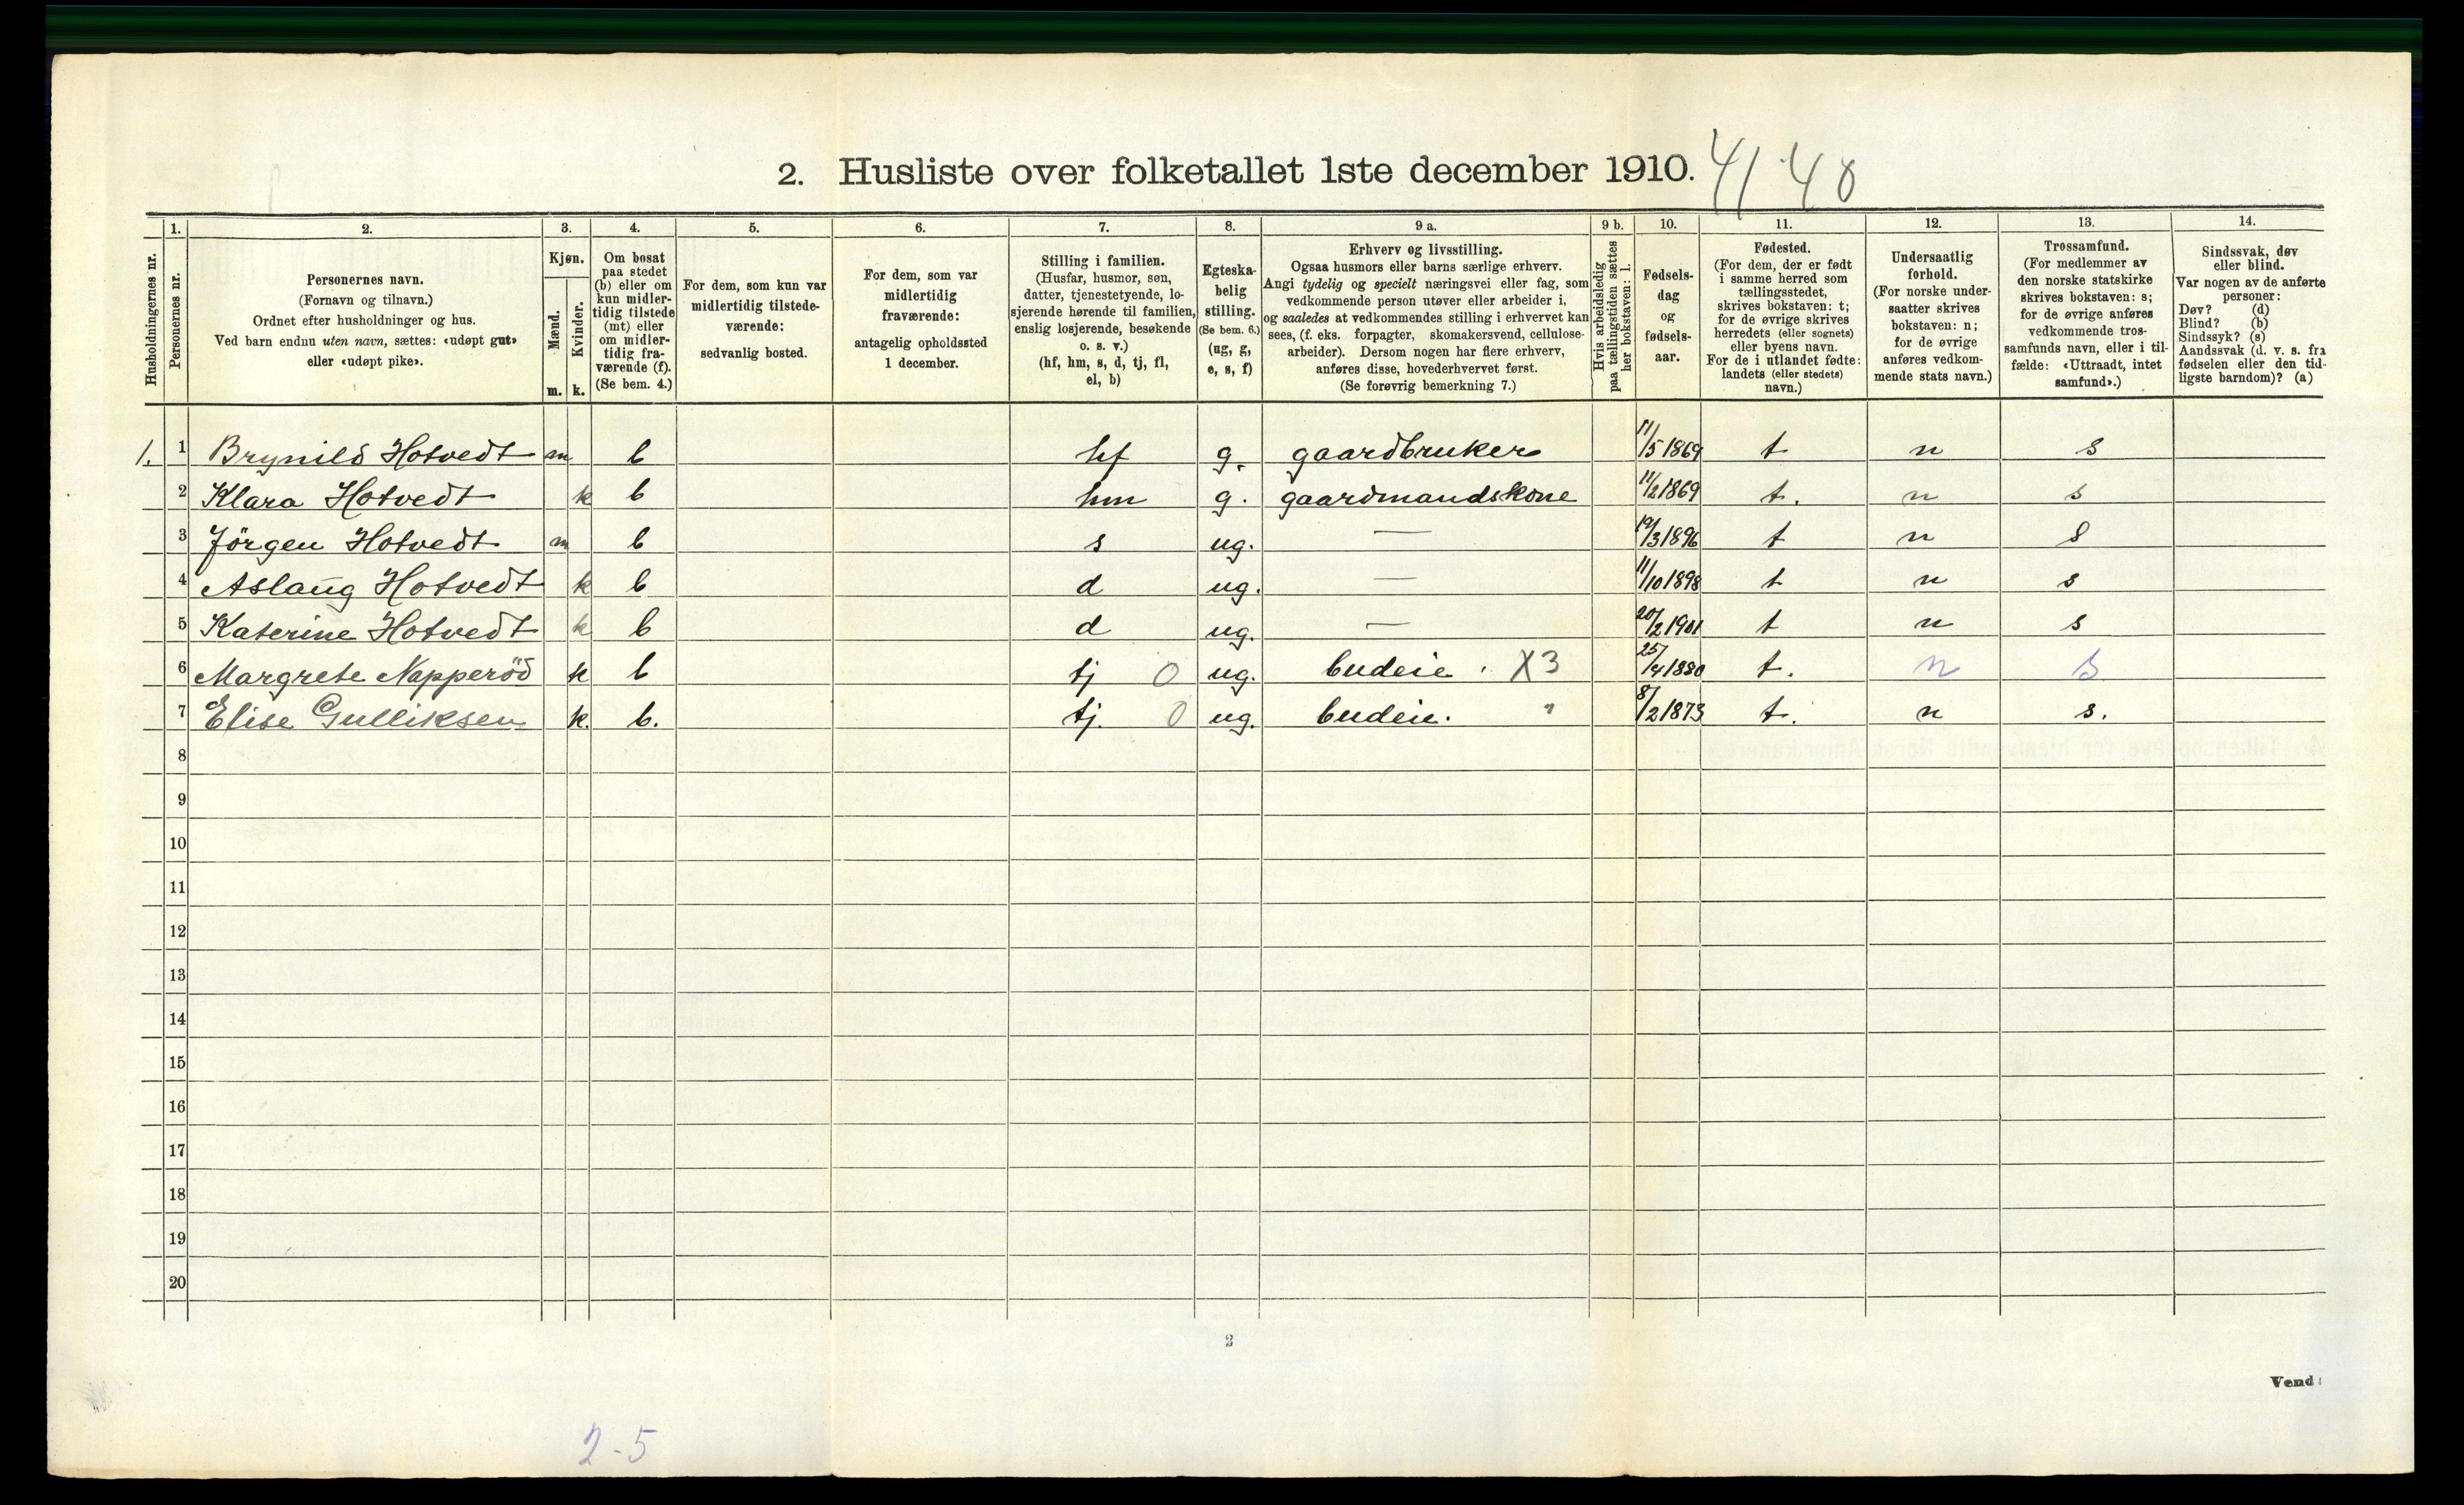 2. Husliste over folketallet 1ste december 1910. 41 40
Husholdningernes nr.
1. Personernes nr.
2. Personernes navn.
(Fornavn og tilnavn.)
Ordnet efter husholdninger og hus.
Ved barn endnu uten navn, sættes: «udøpt gut»
eller «udøpt pike».
3. Kjøn.
Mænd. m.
Kvinder. k.
4. Om bosat
paa stedet
(b) eller om
kun midler-
tidig tilstede
(mt) eller
om midler-
tidig fra-
værende (f).
(Se bem. 4.)
5. For dem, som kun var
midlertidig tilstede-
værende:
sedvanlig bosted.
6. For dem, som var
midlertidig
fraværende:
antagelig opholdssted
1 december.
7. Stilling i familien.
(Husfar, husmor, søn,
datter, tjenestetyende, lo-
sjerende hørende til familien,
enslig losjerende, besøkende
o. s. v.)
(hf, hm, s, d, tj, fl,
el, b)
8. Egteska-
belig
stilling.
(Se bem. 6.)
(ug, g,
e, s, f)
9 a. Erhverv og livsstilling.
Ogsaa husmors eller barns særlige erhverv.
Angi tydelig og specielt næringsvei eller fag, som
vedkommende person utøver eller arbeider i,
og saaledes at vedkommendes stilling i erhvervet kan
sees, (f. eks. forpagter, skomakersvend, cellulose-
arbeider). Dersom nogen har flere erhverv,
anføres disse, hovederhvervet først.
(Se forøvrig bemerkning 7.)
9 b. Hvis arbeidsledig
paa tællingstiden sættes
her bokstaven: l.
10. Fødsels-
dag
og
fødsels-
aar.
11. Fødested.
(For dem, der er født
i samme herred som
tællingsstedet,
skrives bokstaven: t;
for de øvrige skrives
herredets (eller sognets)
eller byens navn.
For de i utlandet fødte:
landets (eller stedets)
navn.)
12. Undersaatlig
forhold.
(For norske under-
saatter skrives
bokstaven: n;
for de øvrige
anføres vedkom-
mende stats navn.)
13. Trossamfund.
(For medlemmer av
den norske statskirke
skrives bokstaven: s;
for de øvrige anføres
vedkommende tros-
samfunds navn, eller i til-
fælde: «Uttraadt, intet
samfund».)
14. Sindssvak, døv
eller blind.
Var nogen av de anførte
personer:
Døv? (d)
Blind? (b)
Sindssyk? (s)
Aandssvak (d. v. s. fra
fødselen eller den tid-
ligste barndom)? (a)
1. 1 Brynild Hotvedt m b hf g. gaardbruker 11/5 1869 t n s
2 Klara Hotvedt k b hm g. gaardmandskone 11/2 1869 t. n s
3 Jörgen Hotvedt m b s ug. — 19/3 1896 t n s
4 Aslaug Hotvedt k b d ug. — 11/10 1898 t n s
5 Katerine Hotvedt k b d ug. — 20/2 1901 t n s
6 Margrete Napperöd k b tj 0 ug. budeie . X3 25/4 1880 t. n s
7 Elise Gulliksen k. b. tj. 0 ug. budeie. " 8/2 1873 t. n s.
8
9
10
11
12
13
14
15
16
17
18
19
20
2
Vend!
2-5